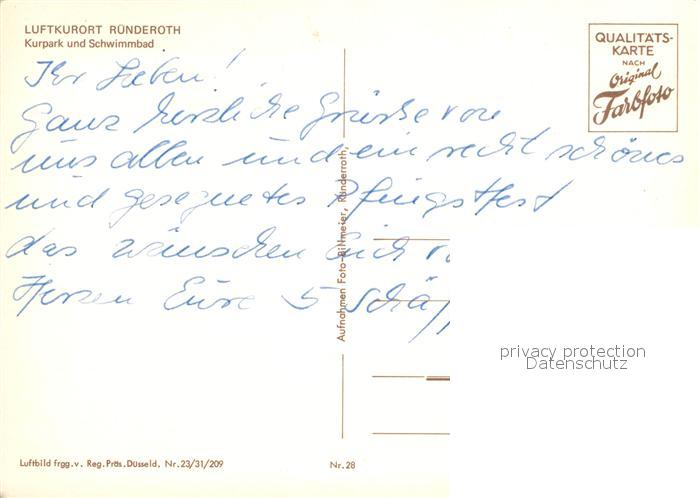 LUFTKURORT RÜNDEROTH
Kurpark und Schwimmbad
QUALITÄTS-
KARTE
NACH
Original
Farbfoto
Ihr Lieben!
Ganz herzliche Grüße von
uns allen und ein recht schönes
und gesegnetes Pfingstfest
das wünschen Euch v
Herzen Eure 5 Schäf
Aufnahmen Foto-Bittmeier, Ründeroth
privacy protection
Datenschutz
Luftbild frgg.v. Reg.Präs.Düsseld. Nr.23/31/209
Nr.28